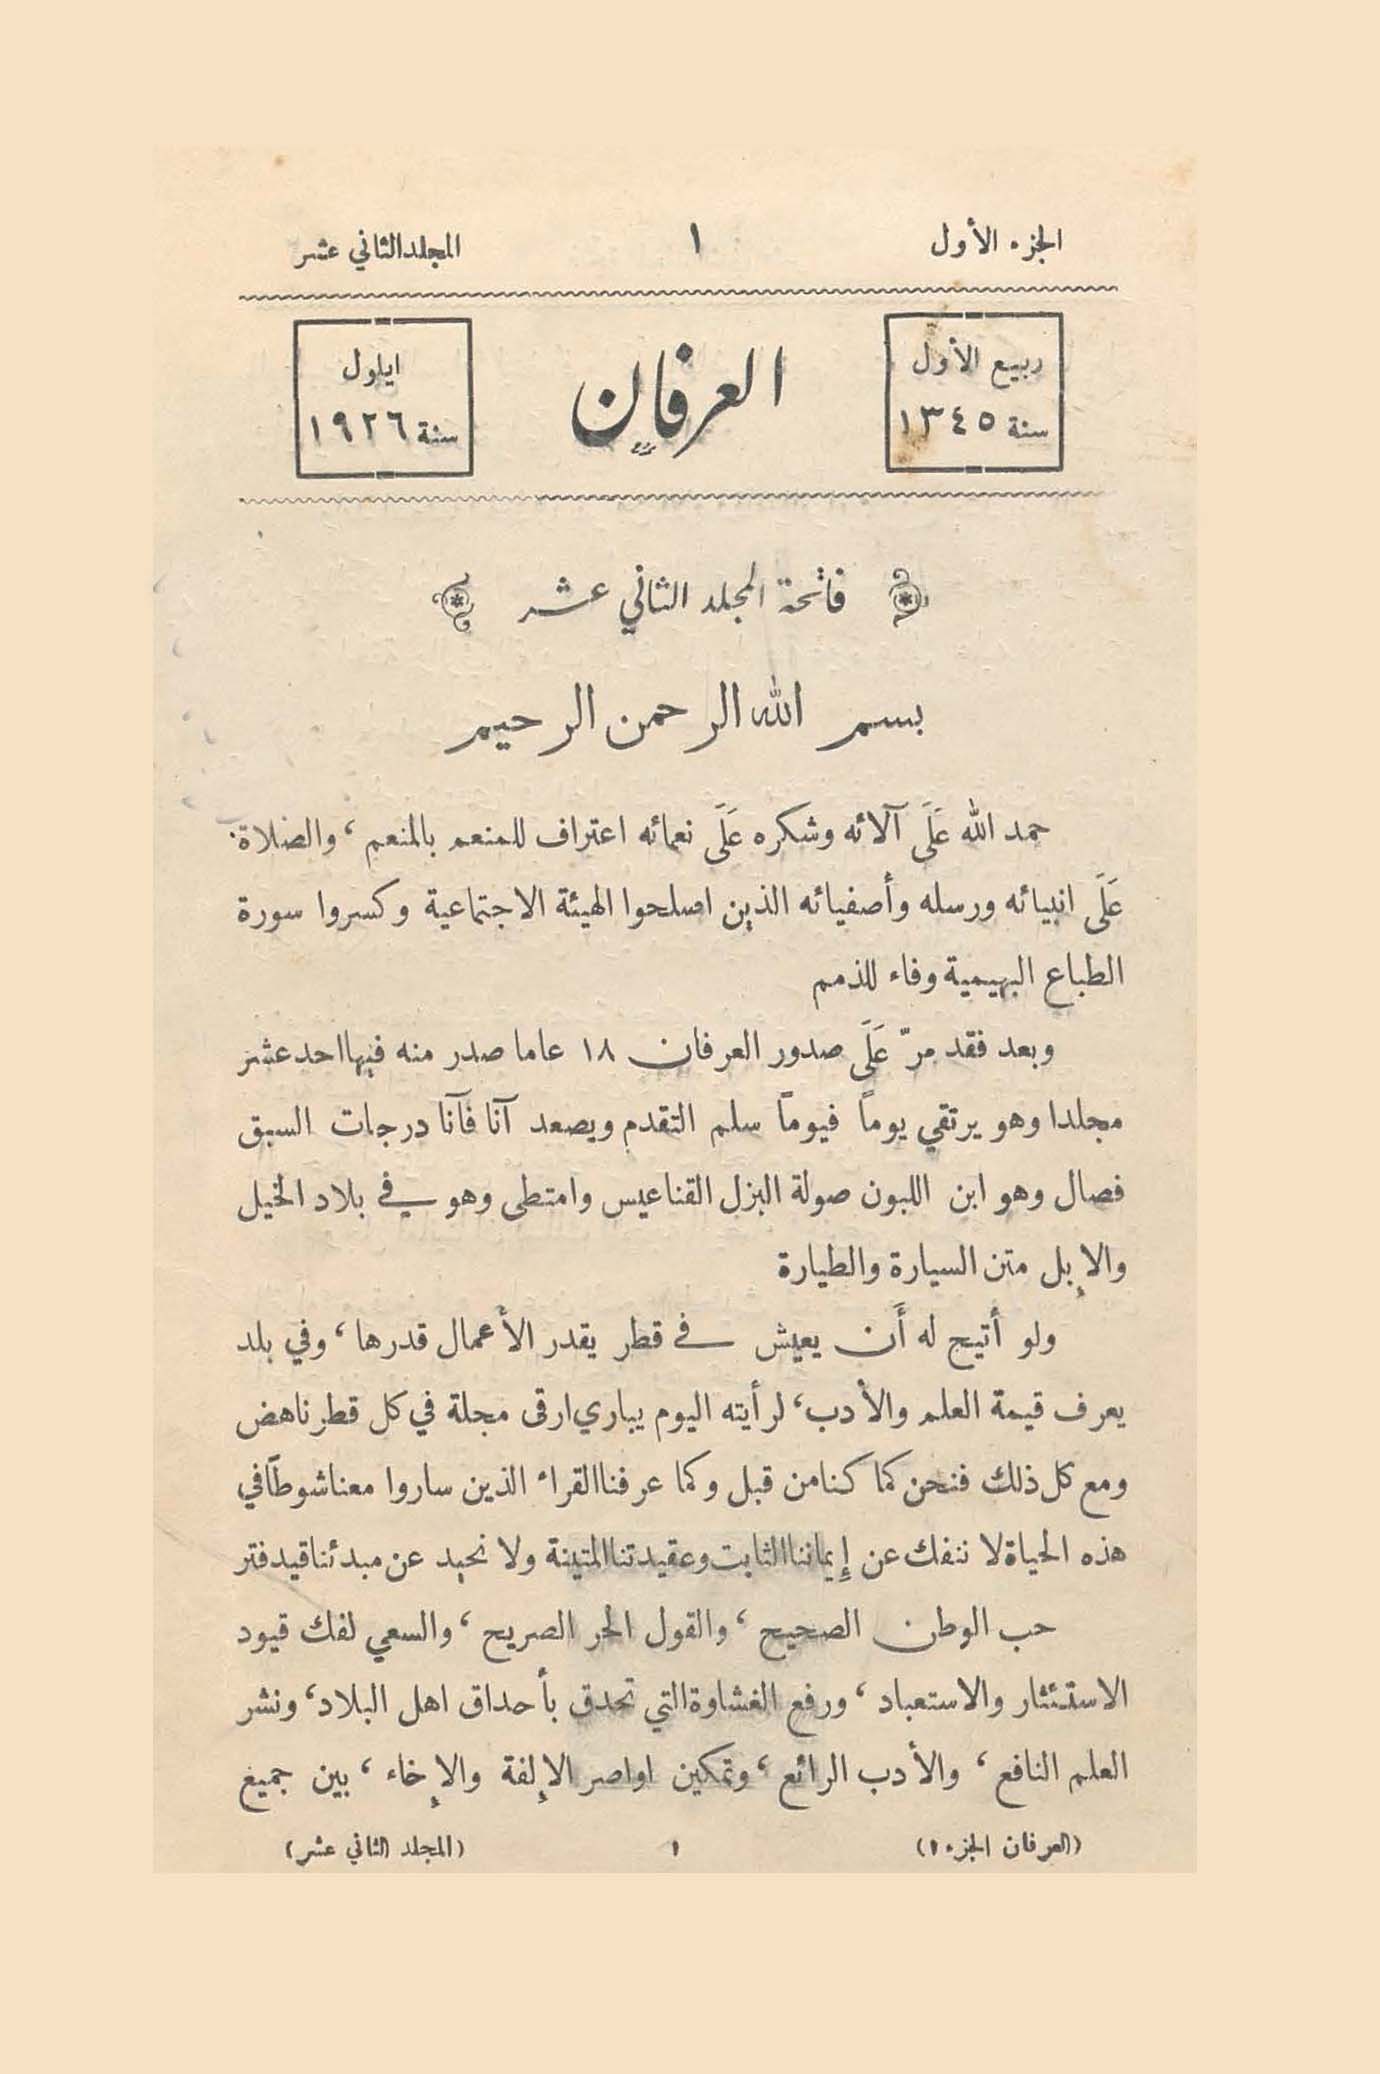 الجزء الأول
١
المجلد الثاني عشر
ربيع الأول
سنة ١٣٤٥
العرفان
ايلول
سنة ١٩٢٦
فاتحة المجلد الثاني عشر
بسم الله الرحمن الرحيم
حمد الله عَلَى آلائه وشكره عَلَى نعمائه اعتراف للمنعم بالمنعم ، والصلاة
عَلَى انبيائه ورسله وأصفيائه الذين اصلحوا الهيئة الاجتماعية وكسروا سورة
الطباع البهيمية وفاء للذمم
وبعد فقد مرّ عَلَى صدور العرفان ١٨ عاما صدر منه فيها احد عشر
مجلدا وهو يرتقي يوماً فيوماً سلم التقدم ويصعد آنا فآنا درجات السبق
فصال وهو ابن اللبون صولة البزل القناعيس وامتطى وهو في بلاد الخيل
والإبل متن السيارة والطيارة
ولو أتيح له أَن يعيش في قطر يقدر الأعمال قدرها ، وفي بلد
يعرف قيمة العلم والأدب ، لرأيته اليوم يباري ارقى مجلة في كل قطر ناهض
ومع كل ذلك فنحن كما كنا من قبل وكما عرفنا القراء الذين ساروا معنا شوطاً في
هذه الحياة لا ننفك عن إيماننا الثابت وعقيدتنا المتينة ولا نحيد عن مبدئنا قيد فتر
حب الوطن الصحيح ، والقول الحر الصريح ، والسعي لفك قيود
الاستئثار والاستعباد ، ورفع الغشاوة التي تحدق بأحداق اهل البلاد ، ونشر
العلم النافع ، والأدب الرائع ، وتمكين اواصر الإلفة والإخاء ، بين جميع
(العرفان الجزء ١)
١
(المجلد الثاني عشر)